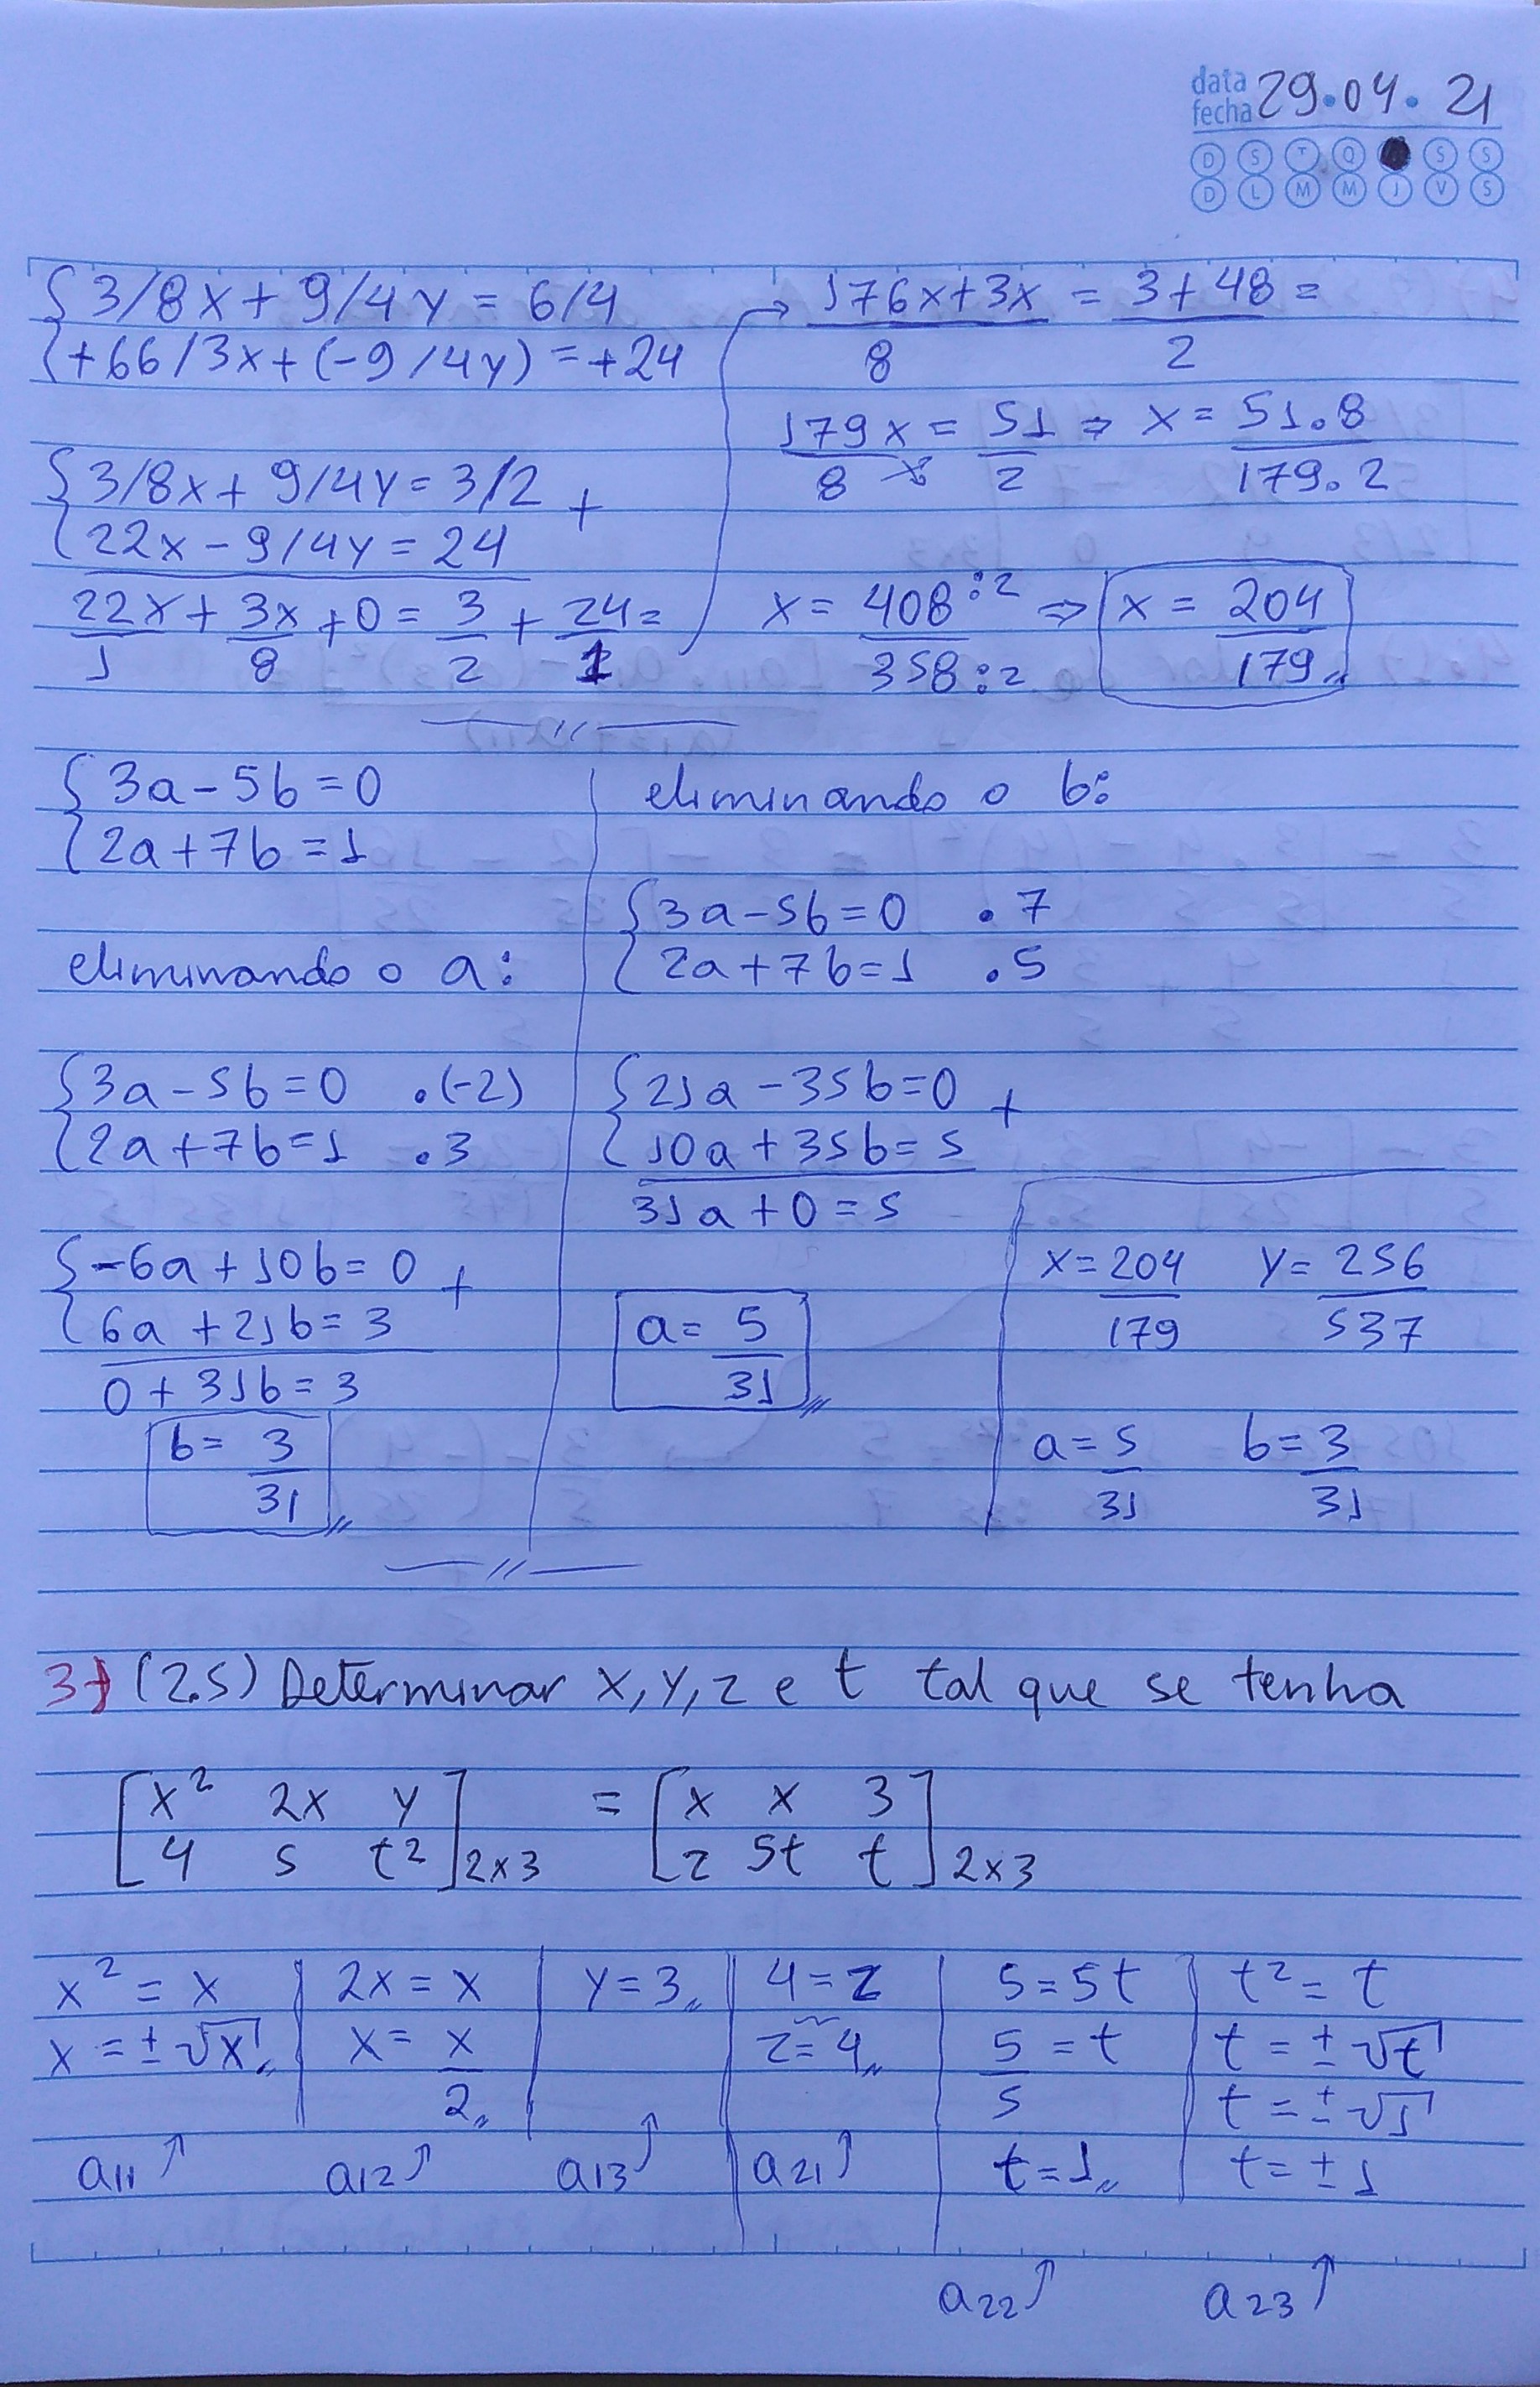 data
fecha 29.04.21
D S T Q S S
D L M M J V S
{ 3/8x + 9/4y = 6/4
{ +66/3x + (-9/4y) = +24
{ 3/8x + 9/4y = 3/2 +
{ 22x - 9/4y = 24
22x/1 + 3x/8 + 0 = 3/2 + 24/1 =
→ 176x+3x/8 = 3+48/2 =
179x/8 = 51/2 ⇒ x = 51.8/179.2
x = 408:2/358:2 ⇒ x = 204/179
{ 3a - 5b = 0
{ 2a + 7b = 1
eliminando o a:
{ 3a - 5b = 0 .(-2)
{ 2a + 7b = 1 .3
{ -6a + 10b = 0 +
{ 6a + 21b = 3
0 + 31b = 3
b = 3/31
eliminando o b:
{ 3a - 5b = 0 .7
{ 2a + 7b = 1 .5
{ 21a - 35b = 0 +
{ 10a + 35b = 5
31a + 0 = 5
a = 5/31
x = 204/179 y = 256/537
a = 5/31 b = 3/31
3) (2.5) Determinar x, y, z e t tal que se tenha
[ x² 2x y ] = [ x x 3 ]
[ 4 5 t² ]2x3 [ z 5t t ]2x3
x² = x | 2x = x | y = 3 | 4 = z | 5 = 5t | t² = t
x = ±√x | x = x/2 | z = 4 | 5/5 = t | t = ±√t
t = ±√1
a11↑ a12↑ a13↑ a21↑ t = 1 | t = ±1
a22↑ a23↑